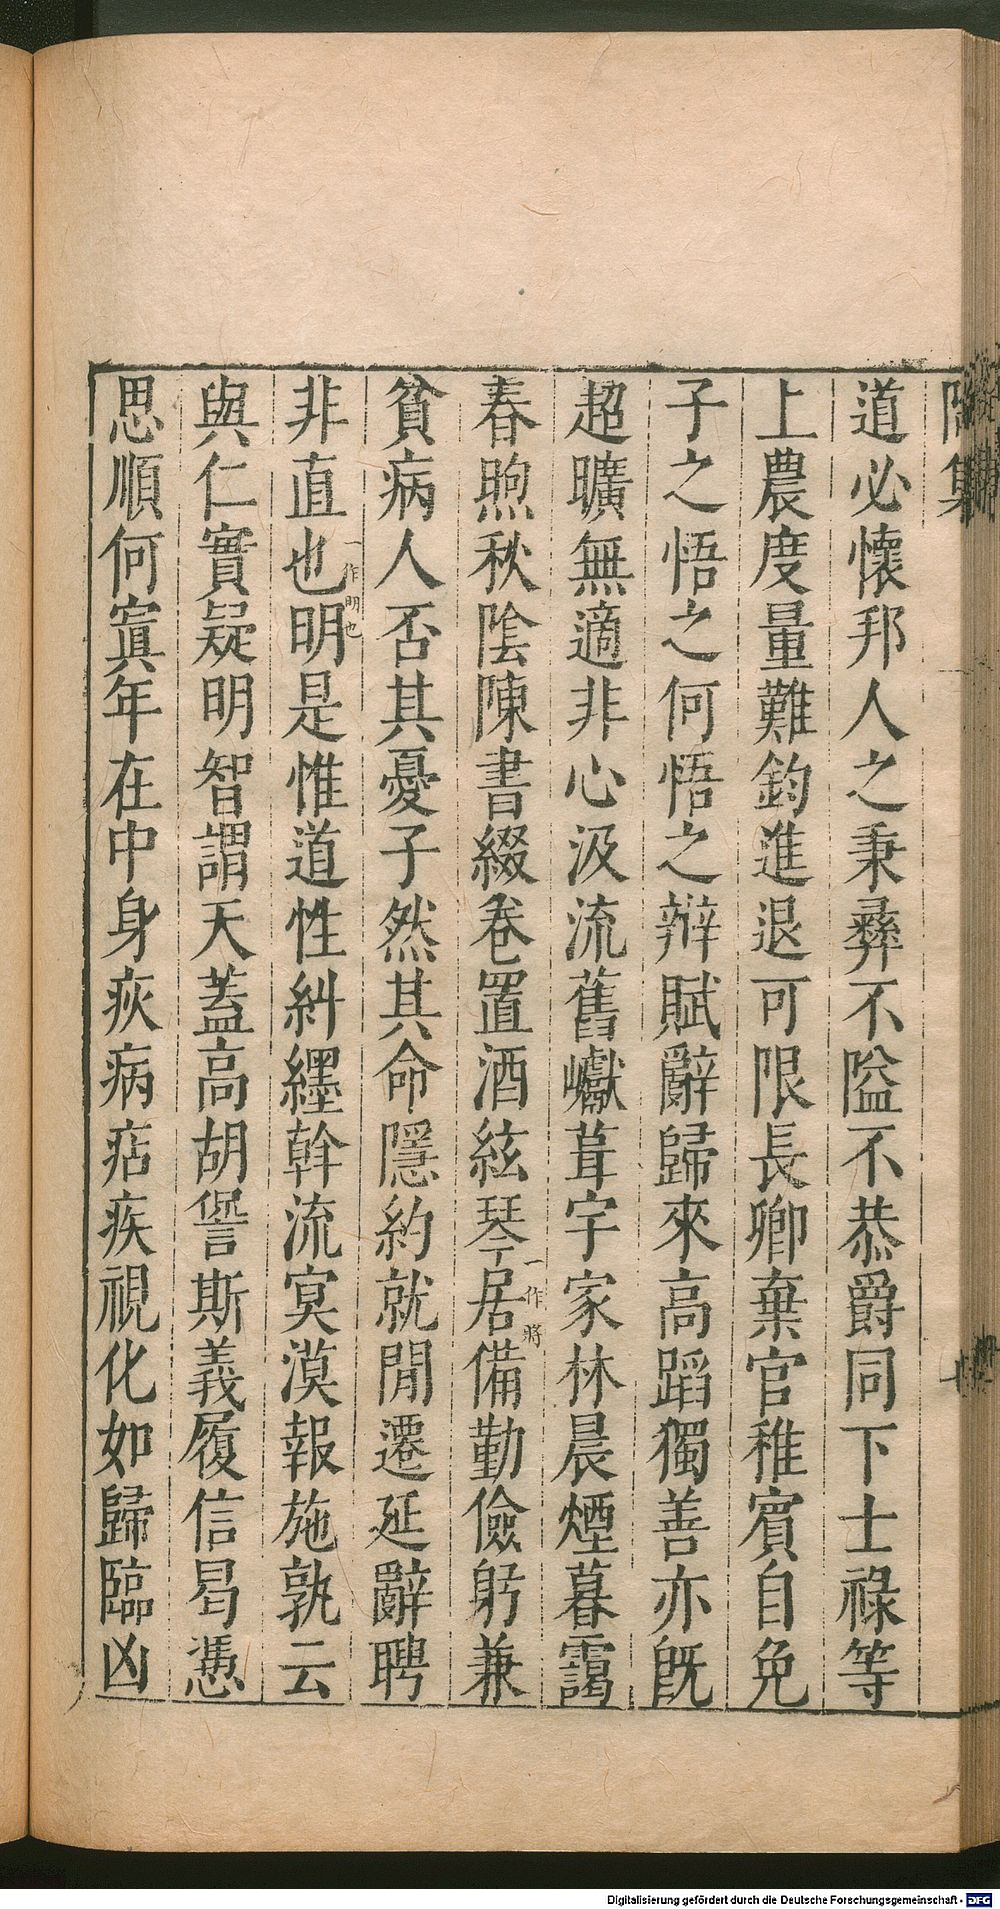 陶集
道必懷邦人之秉彝不隘不恭爵同下士祿等
上農度量難鈞進退可限長卿棄官稚賓自免
子之悟之何悟之辯賦辭歸來高蹈獨善亦既
超曠無適非心汲流舊巘葺宇家林晨煙暮靄
春煦秋陰陳書綴卷置酒絃琴居備勤儉躬兼
一作將
貧病人否其憂子然其命隱約就閒遷延辭聘
非直也明是惟道性糾纆斡流冥漠報施孰云
一作明也
與仁實疑明智謂天蓋高胡諐斯義履信曷憑
思順何寘年在中身疢病痁疾視化如歸臨凶
Digitalisierung gefördert durch die Deutsche Forschungsgemeinschaft - DFG